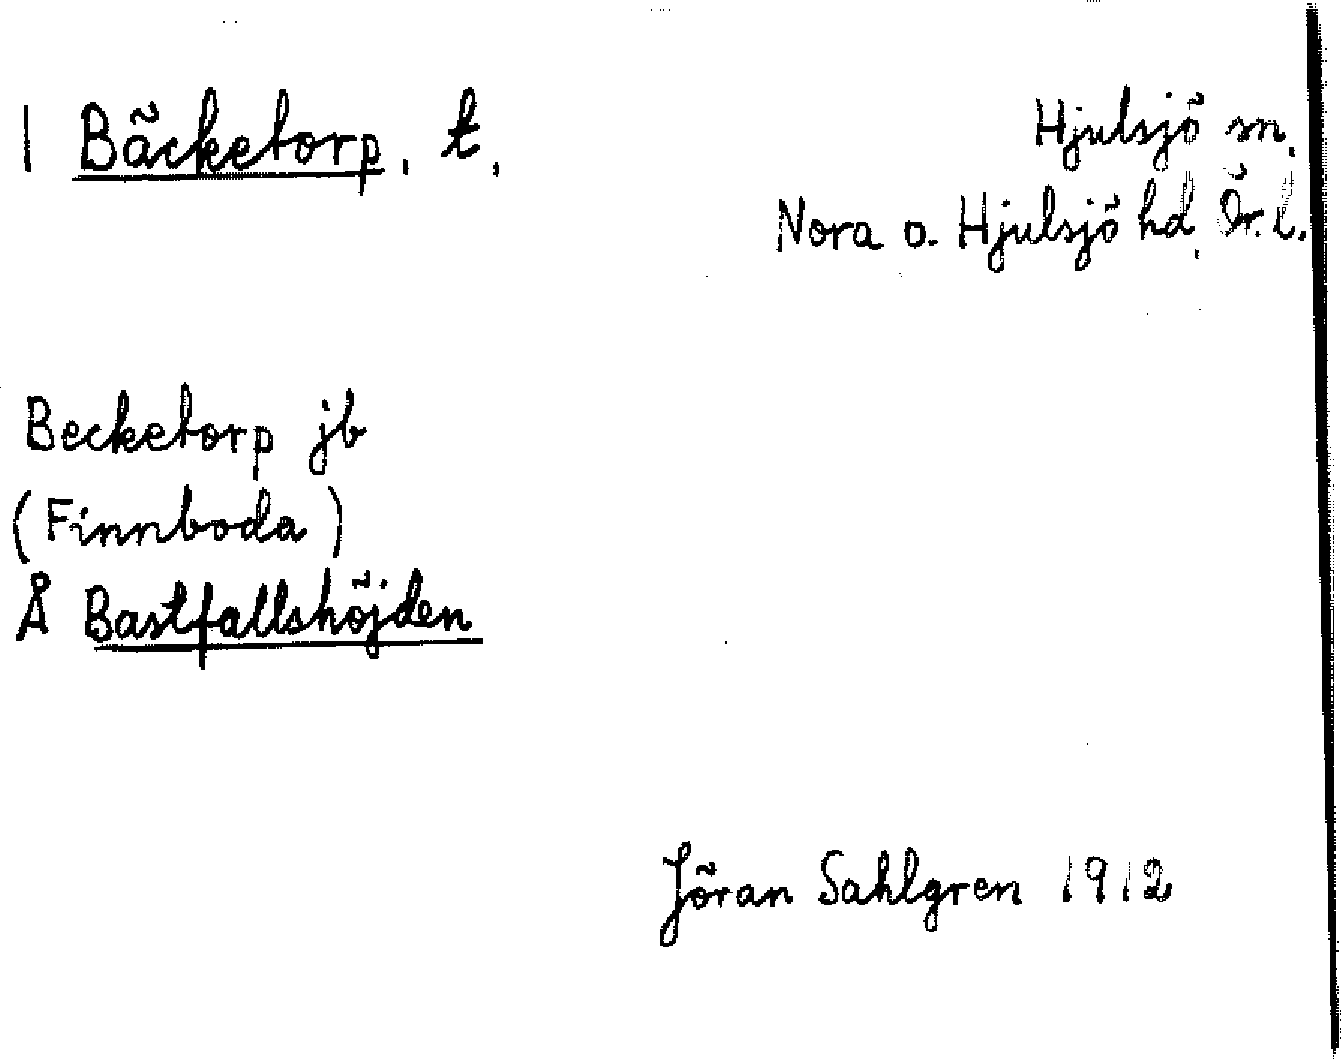 1 Bäcketorp, t,
Hjulsjö sn,
Nora o. Hjulsjö hd, Ör. l.
Becketorp jb
(Finnboda)
Å Bastfallshöjden
Jöran Sahlgren 1912